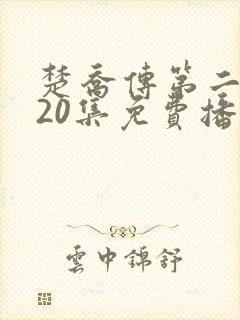 楚喬傳第二
20集免費播
雲中錦舒